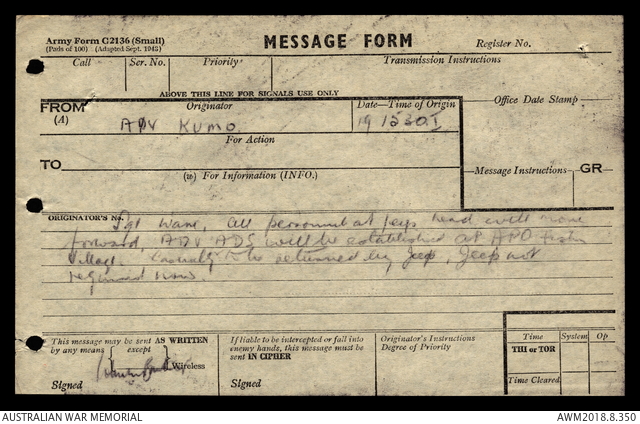 Army Form C2136 (Small)
(Pads of 100) (Adapted Sept. 1945)
MESSAGE FORM
Register No.
Call
Ser. No.
Priority
Transmission Instructions
ABOVE THIS LINE FOR SIGNALS USE ONLY
FROM
(A)
Originator
ADV KUMO
Date—Time of Origin
19 1530 I
Office Date Stamp
For Action
TO
(w) For Information (INFO.)
Message Instructions
GR
ORIGINATOR'S No.
Sgt all personnel at Jeep head will move
forward, ADV ADS will be established at APO
Village. to be returned by Jeep, Jeep not
required now.
This message may be sent AS WRITTEN
by any means { except } Wireless
Signed
If liable to be intercepted or fall into
enemy hands, this message must be
sent IN CIPHER
Signed
Originator's Instructions
Degree of Priority
Time
System
Op
THI or TOR
Time Cleared
AUSTRALIAN WAR MEMORIAL
AWM2018.8.350